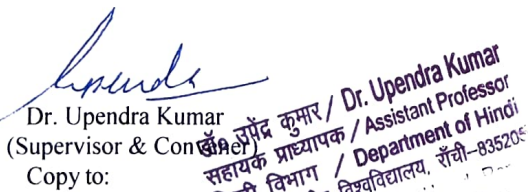 Upendra
Dr. Upendra Kumar
(Supervisor & Convener)
Copy to:
डॉ. उपेंद्र कुमार / Dr. Upendra Kumar
सहायक प्राध्यापक / Assistant Professor
विभाग / Department of Hindi
विश्वविद्यालय, राँची-835205